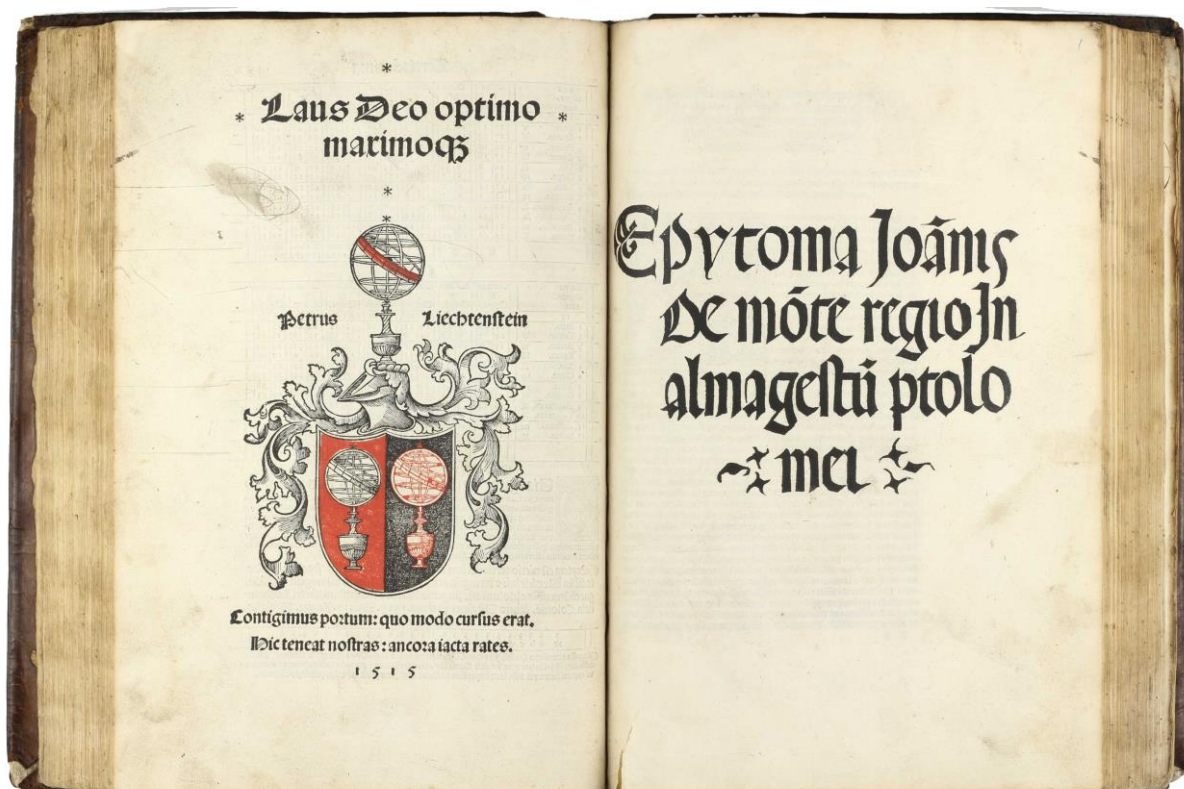 Laus Deo optimo
maximoqꝫ
Petrus Liechtenstein
Contigimus portum: quo modo cursus erat.
Hic teneat nostras: ancora iacta rates.
1515
Epytoma Joānis
De mōte regio In
almagestū ptolo
mei